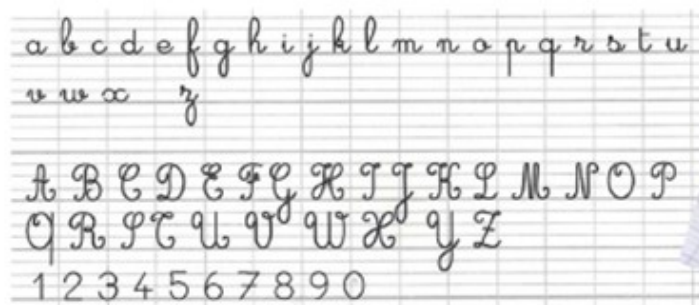 a b c d e f g h i j k l m n o p q r s t u
v w x z
A B C D E F G H I J K L M N O P
Q R S T U V W X Y Z
1 2 3 4 5 6 7 8 9 0